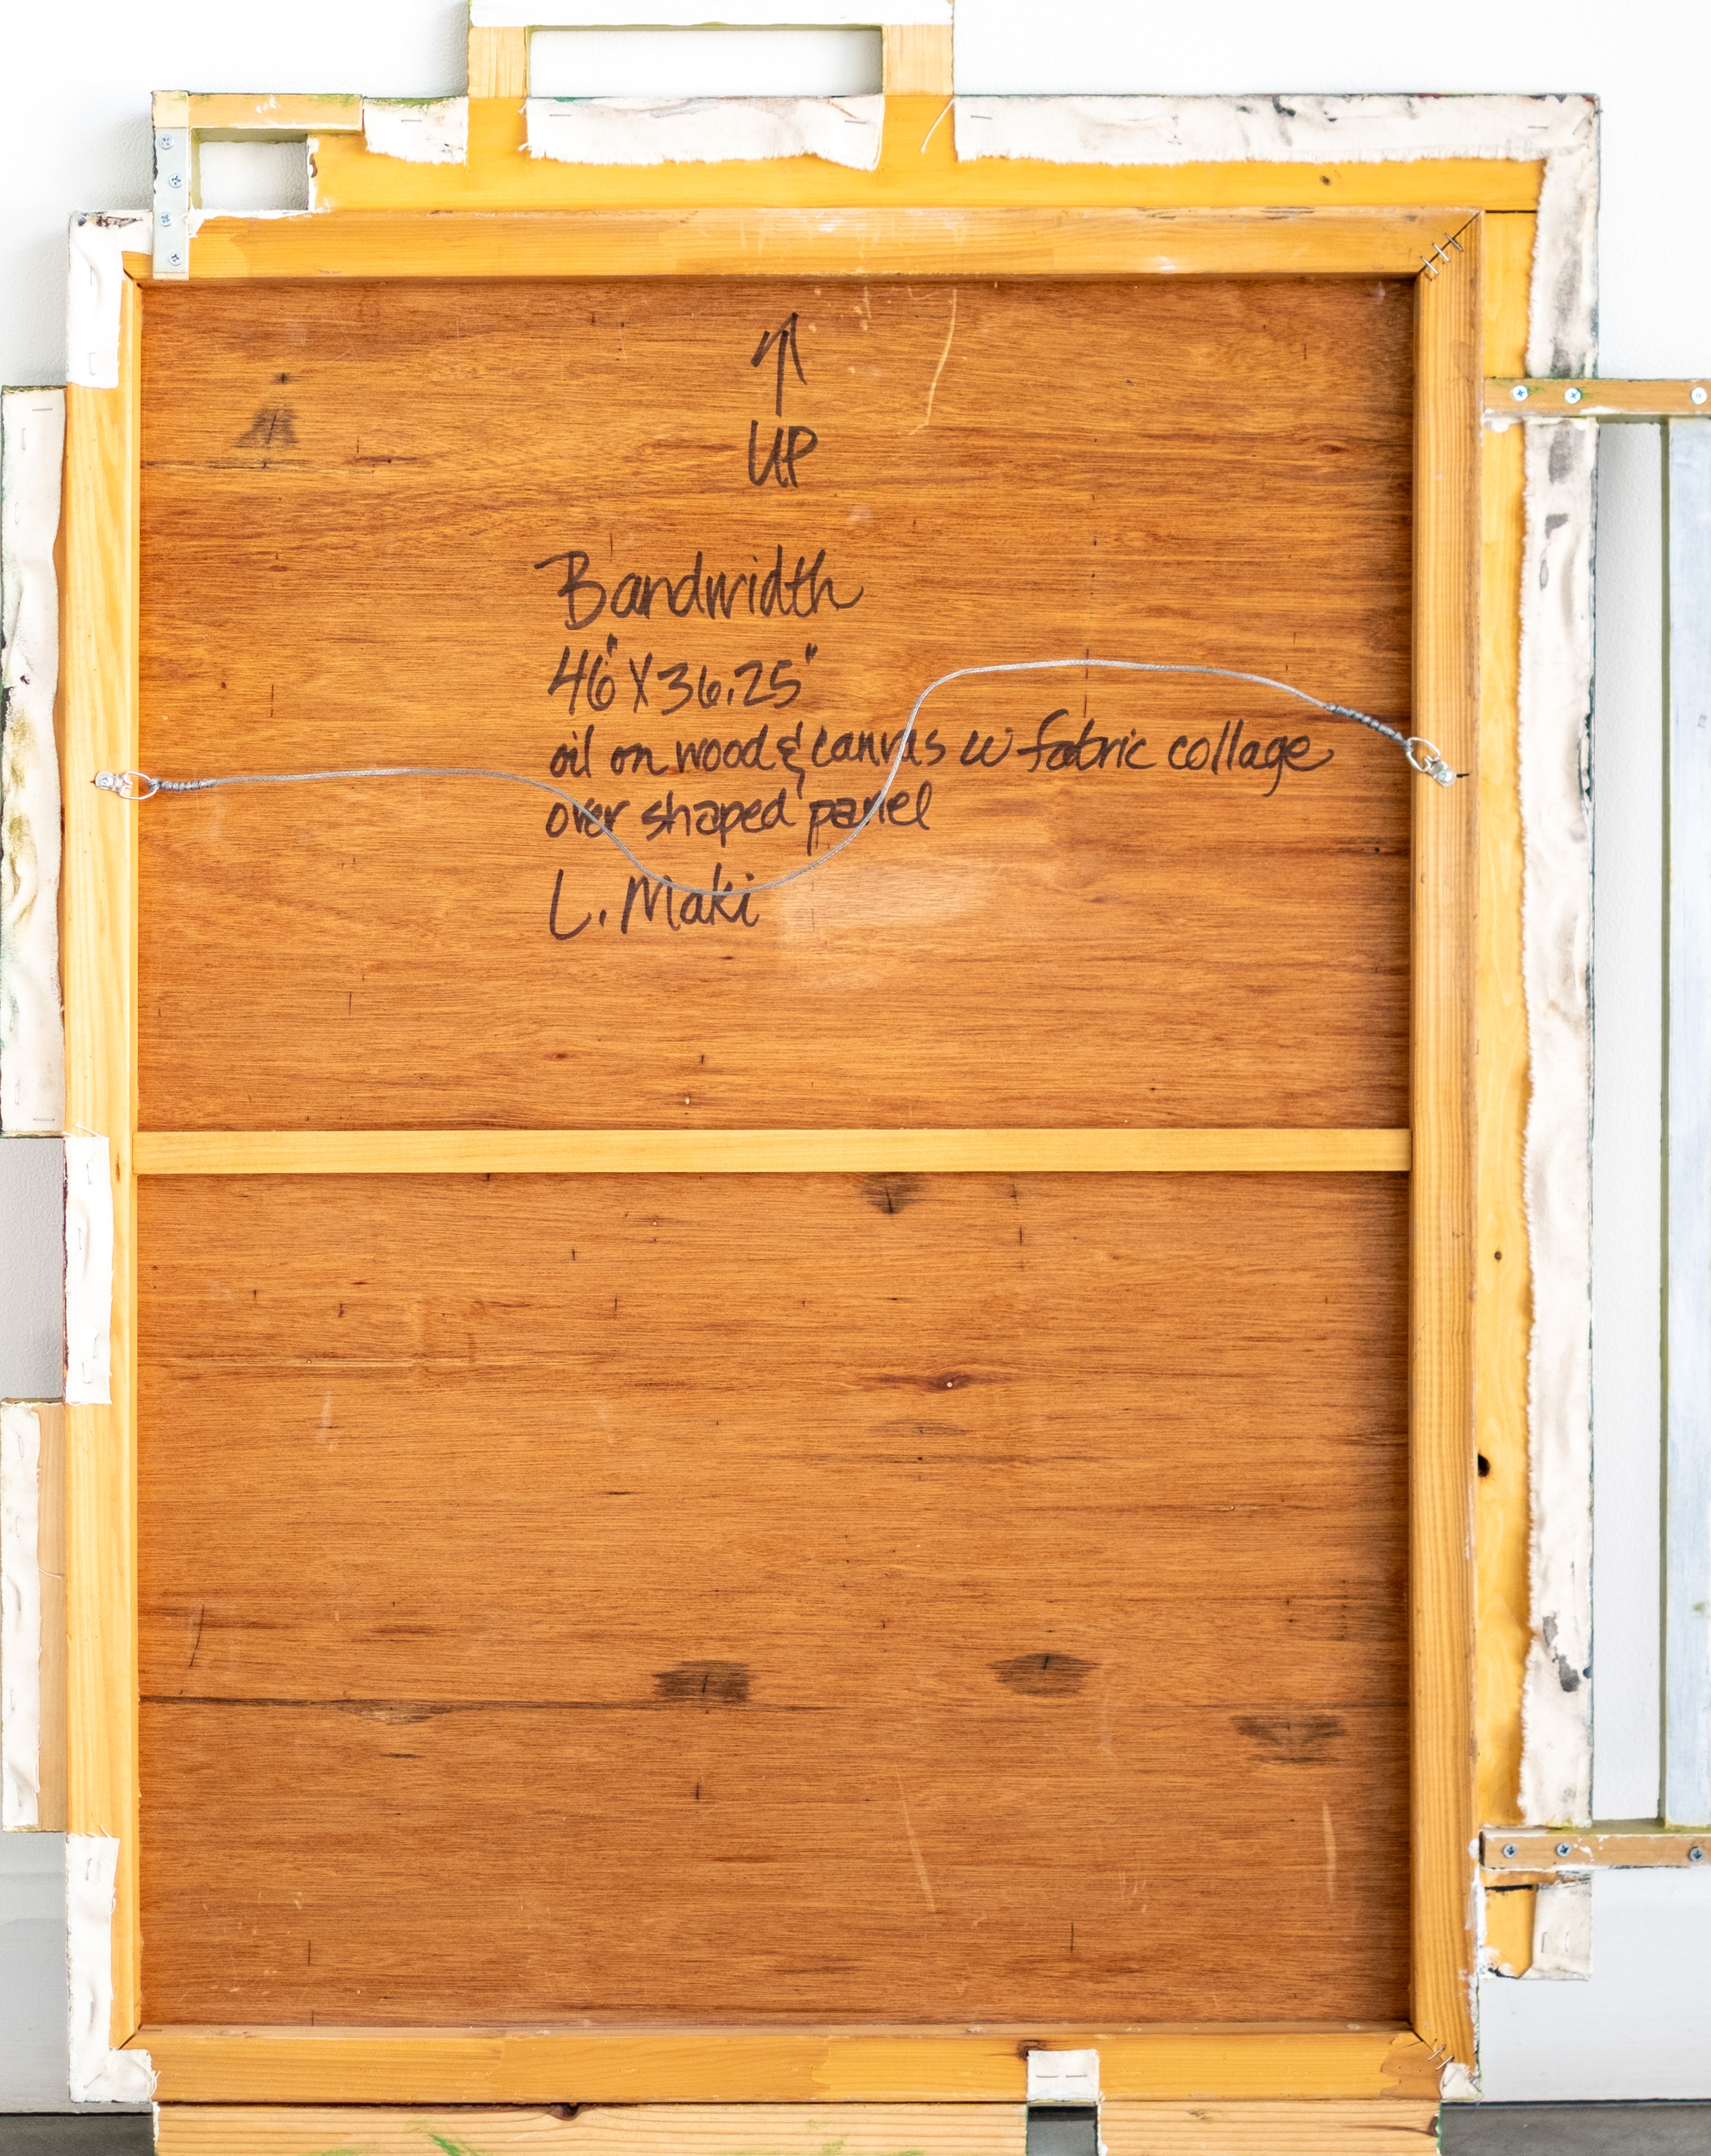 UP
Bandwidth
46" X 36.25"
oil on wood & canvas w fabric collage
over shaped panel
L. Maki